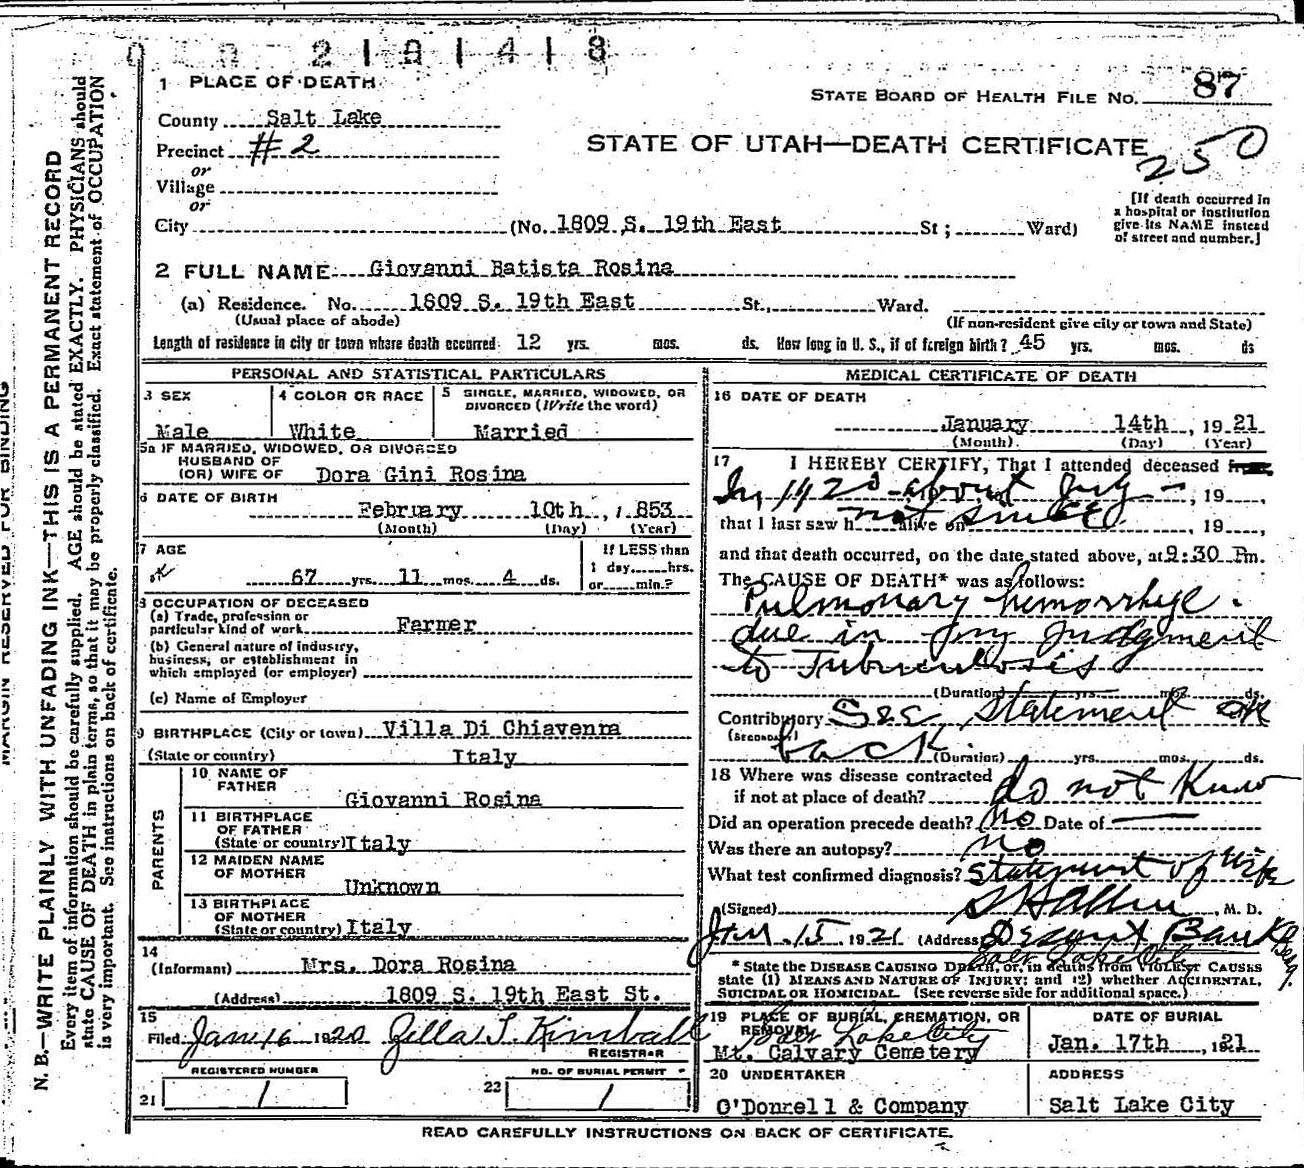 2 1 0 1 4 1 8
1 PLACE OF DEATH
STATE BOARD OF HEALTH FILE No. 87
County Salt Lake
STATE OF UTAH—DEATH CERTIFICATE
250
Precinct #2
or
Village
or
City (No. 1809 S. 19th East St; Ward)
[If death occurred in
a hospital or institution
give its NAME instead
of street and number.]
2 FULL NAME Giovanni Batista Rosina
(a) Residence. No. 1809 S. 19th East St., Ward.
(Usual place of abode) (If non-resident give city or town and State)
Length of residence in city or town where death occurred 12 yrs. mos. ds. How long in U. S., if of foreign birth? 45 yrs. mos. ds
PERSONAL AND STATISTICAL PARTICULARS
3 SEX Male
4 COLOR OR RACE White
5 SINGLE, MARRIED, WIDOWED, OR
DIVORCED (Write the word)
Married
5a IF MARRIED, WIDOWED, OR DIVORCED
HUSBAND OF
(OR) WIFE OF Dora Gini Rosina
6 DATE OF BIRTH
February 10th, 1853
(Month) (Day) (Year)
7 AGE
ok 67 yrs. 11 mos. 4 ds.
If LESS than
1 day, hrs.
or min.?
8 OCCUPATION OF DECEASED
(a) Trade, profession or
particular kind of work Farmer
(b) General nature of industry,
business, or establishment in
which employed (or employer)
(c) Name of Employer
9 BIRTHPLACE (City or town) Villa Di Chiavenna
(State or country) Italy
PARENTS
10 NAME OF
FATHER
Giovanni Rosina
11 BIRTHPLACE
OF FATHER
(State or country) Italy
12 MAIDEN NAME
OF MOTHER
Unknown
13 BIRTHPLACE
OF MOTHER
(State or country) Italy
14
(Informant) Mrs. Dora Rosina
(Address) 1809 S. 19th East St.
15
Filed Jan 16 1920 Zella T. Kimball
REGISTRAR
REGISTERED NUMBER
21 1
NO. OF BURIAL PERMIT
22 1
MEDICAL CERTIFICATE OF DEATH
16 DATE OF DEATH
January 14th, 1921
(Month) (Day) (Year)
17 I HEREBY CERTIFY, That I attended deceased from
In 1920 about July —, 19
that I last saw h alive on not since, 19
and that death occurred, on the date stated above, at 9:30 Pm.
The CAUSE OF DEATH* was as follows:
Pulmonary hemorrhage.
due in my Judgment
to Tuberculosis
(Duration) yrs. mos. ds.
Contributory See Statement on
(SECONDARY) back
(Duration) yrs. mos. ds.
18 Where was disease contracted
if not at place of death? do not Know
Did an operation precede death? No Date of —
Was there an autopsy? no
What test confirmed diagnosis? Statement of Wife
(Signed) S H Allen, M. D.
Jan. 15 1921 (Address) Deseret Bank Bldg.
Salt Lake City
* State the DISEASE CAUSING DEATH, or, in deaths from VIOLENT CAUSES
state (1) MEANS AND NATURE OF INJURY; and (2) whether ACCIDENTAL,
SUICIDAL OR HOMICIDAL. (See reverse side for additional space.)
19 PLACE OF BURIAL, CREMATION, OR
REMOVAL Salt Lake City
Mt. Calvary Cemetery
DATE OF BURIAL
Jan. 17th, 1921
20 UNDERTAKER
O'Donnell & Company
ADDRESS
Salt Lake City
READ CAREFULLY INSTRUCTIONS ON BACK OF CERTIFICATE.
MARGIN RESERVED FOR BINDING
N. B.—WRITE PLAINLY WITH UNFADING INK—THIS IS A PERMANENT RECORD
Every item of information should be carefully supplied. AGE should be stated EXACTLY. PHYSICIANS should
state CAUSE OF DEATH in plain terms, so that it may be properly classified. Exact statement of OCCUPATION
is very important. See instructions on back of certificate.